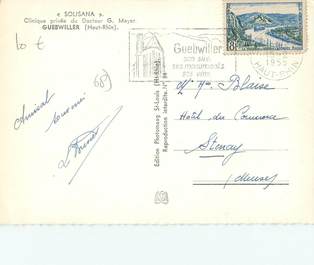 « SOLISANA ».
Clinique privée du Docteur G. Meyer.
GUEBWILLER (Haut-Rhin).
10 €
68
Guebwiller
son site
ses monuments
ses vins
1955
HAUT-RHIN
Edition Photorossag St-Louis (Ht-Rhin).
Reproduction interdite. N° 88
Amical
souvenir
Mr Mme Blaise
Hôtel du Commerce
Stenay
(Meuse)